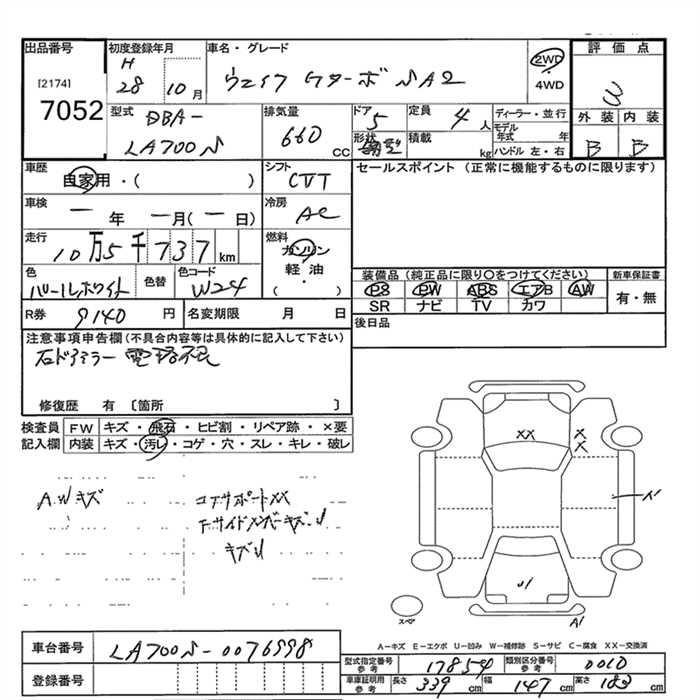 出品番号
[2174]
7052
初度登録年月
H
28 10月
車名・グレード
ウェイク Gターボ SA2
2WD
・
4WD
評価点
3
外装 内装
B B
型式
DBA-
LA700S
排気量
660 CC
ドア
5
形状
定員
4人
積載
kg
ディーラー・並行
モデル年式 年
ハンドル 左・右
車歴
自家用・( )
シフト
CVT
セールスポイント (正常に機能するものに限ります)
車検
一年 一月(一日)
冷房
AC
走行
10万5千737km
燃料
ガソリン
・
軽油
・
( )
色
パールホワイト
色替
色コード
W24
装備品 (純正品に限り○をつけてください)
PS PW ABS エアB AW
SR ナビ TV カワ
新車保証書
有・無
R券 9140円
名変期限 月 日
後日品
注意事項申告欄(不具合内容等は具体的に記入して下さい)
右ドアミラー電格不良
修復歴 有 〔箇所 〕
検査員記入欄
FW キズ・飛石・ヒビ割・リペア跡・×要
内装 キズ・汚レ・コゲ・穴・スレ・キレ・破レ
A.Wキズ
コアサポートXX
FサイドメンバーキズU
キズU
XX
X
X
A1
U1
A1
スペア
A-キズ E-エクボ U-凹み W-補修跡 S-サビ C-腐食 XX-交換済
車台番号 LA700S-0076998
登録番号
型式指定番号 参考 17854
類別区分番号 参考 0010
車庫証明用 参考 長さ 339cm 幅 147cm 高さ 183cm